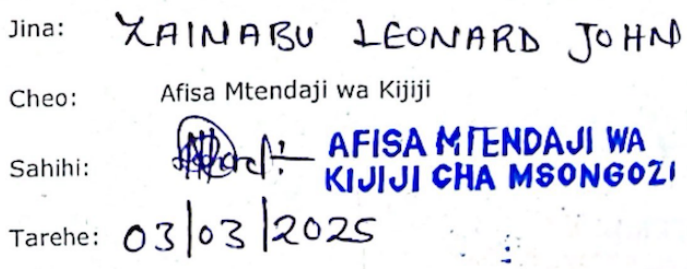 Jina: ZAINABU LEONARD JOHN
Cheo: Afisa Mtendaji wa Kijiji
Sahihi: AFISA MTENDAJI WA
KIJIJI CHA MSONGOZI
Tarehe: 03/03/2025